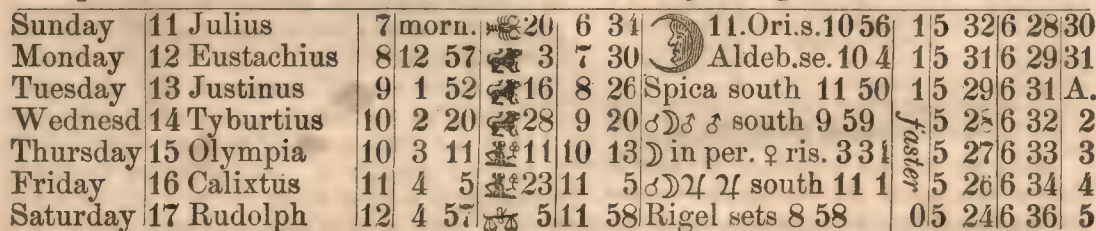 Sunday 11 Julius 7 morn. 20 6 34 11.Ori.s.10 56 1 5 32 6 28 30
Monday 12 Eustachius 8 12 57 3 7 30 Aldeb.se. 10 4 1 5 31 6 29 31
Tuesday 13 Justinus 9 1 52 16 8 26 Spica south 11 50 1 5 29 6 31 A.
Wednesd 14 Tyburtius 10 2 20 28 9 20 ☌☽♂ ♂ south 9 59 faster 5 28 6 32 2
Thursday 15 Olympia 10 3 11 11 10 13 ☽ in per. ♀ ris. 3 31 5 27 6 33 3
Friday 16 Calixtus 11 4 5 23 11 5 ☌☽♃ ♃ south 11 1 5 26 6 34 4
Saturday 17 Rudolph 12 4 57 5 11 58 Rigel sets 8 58 0 5 24 6 36 5